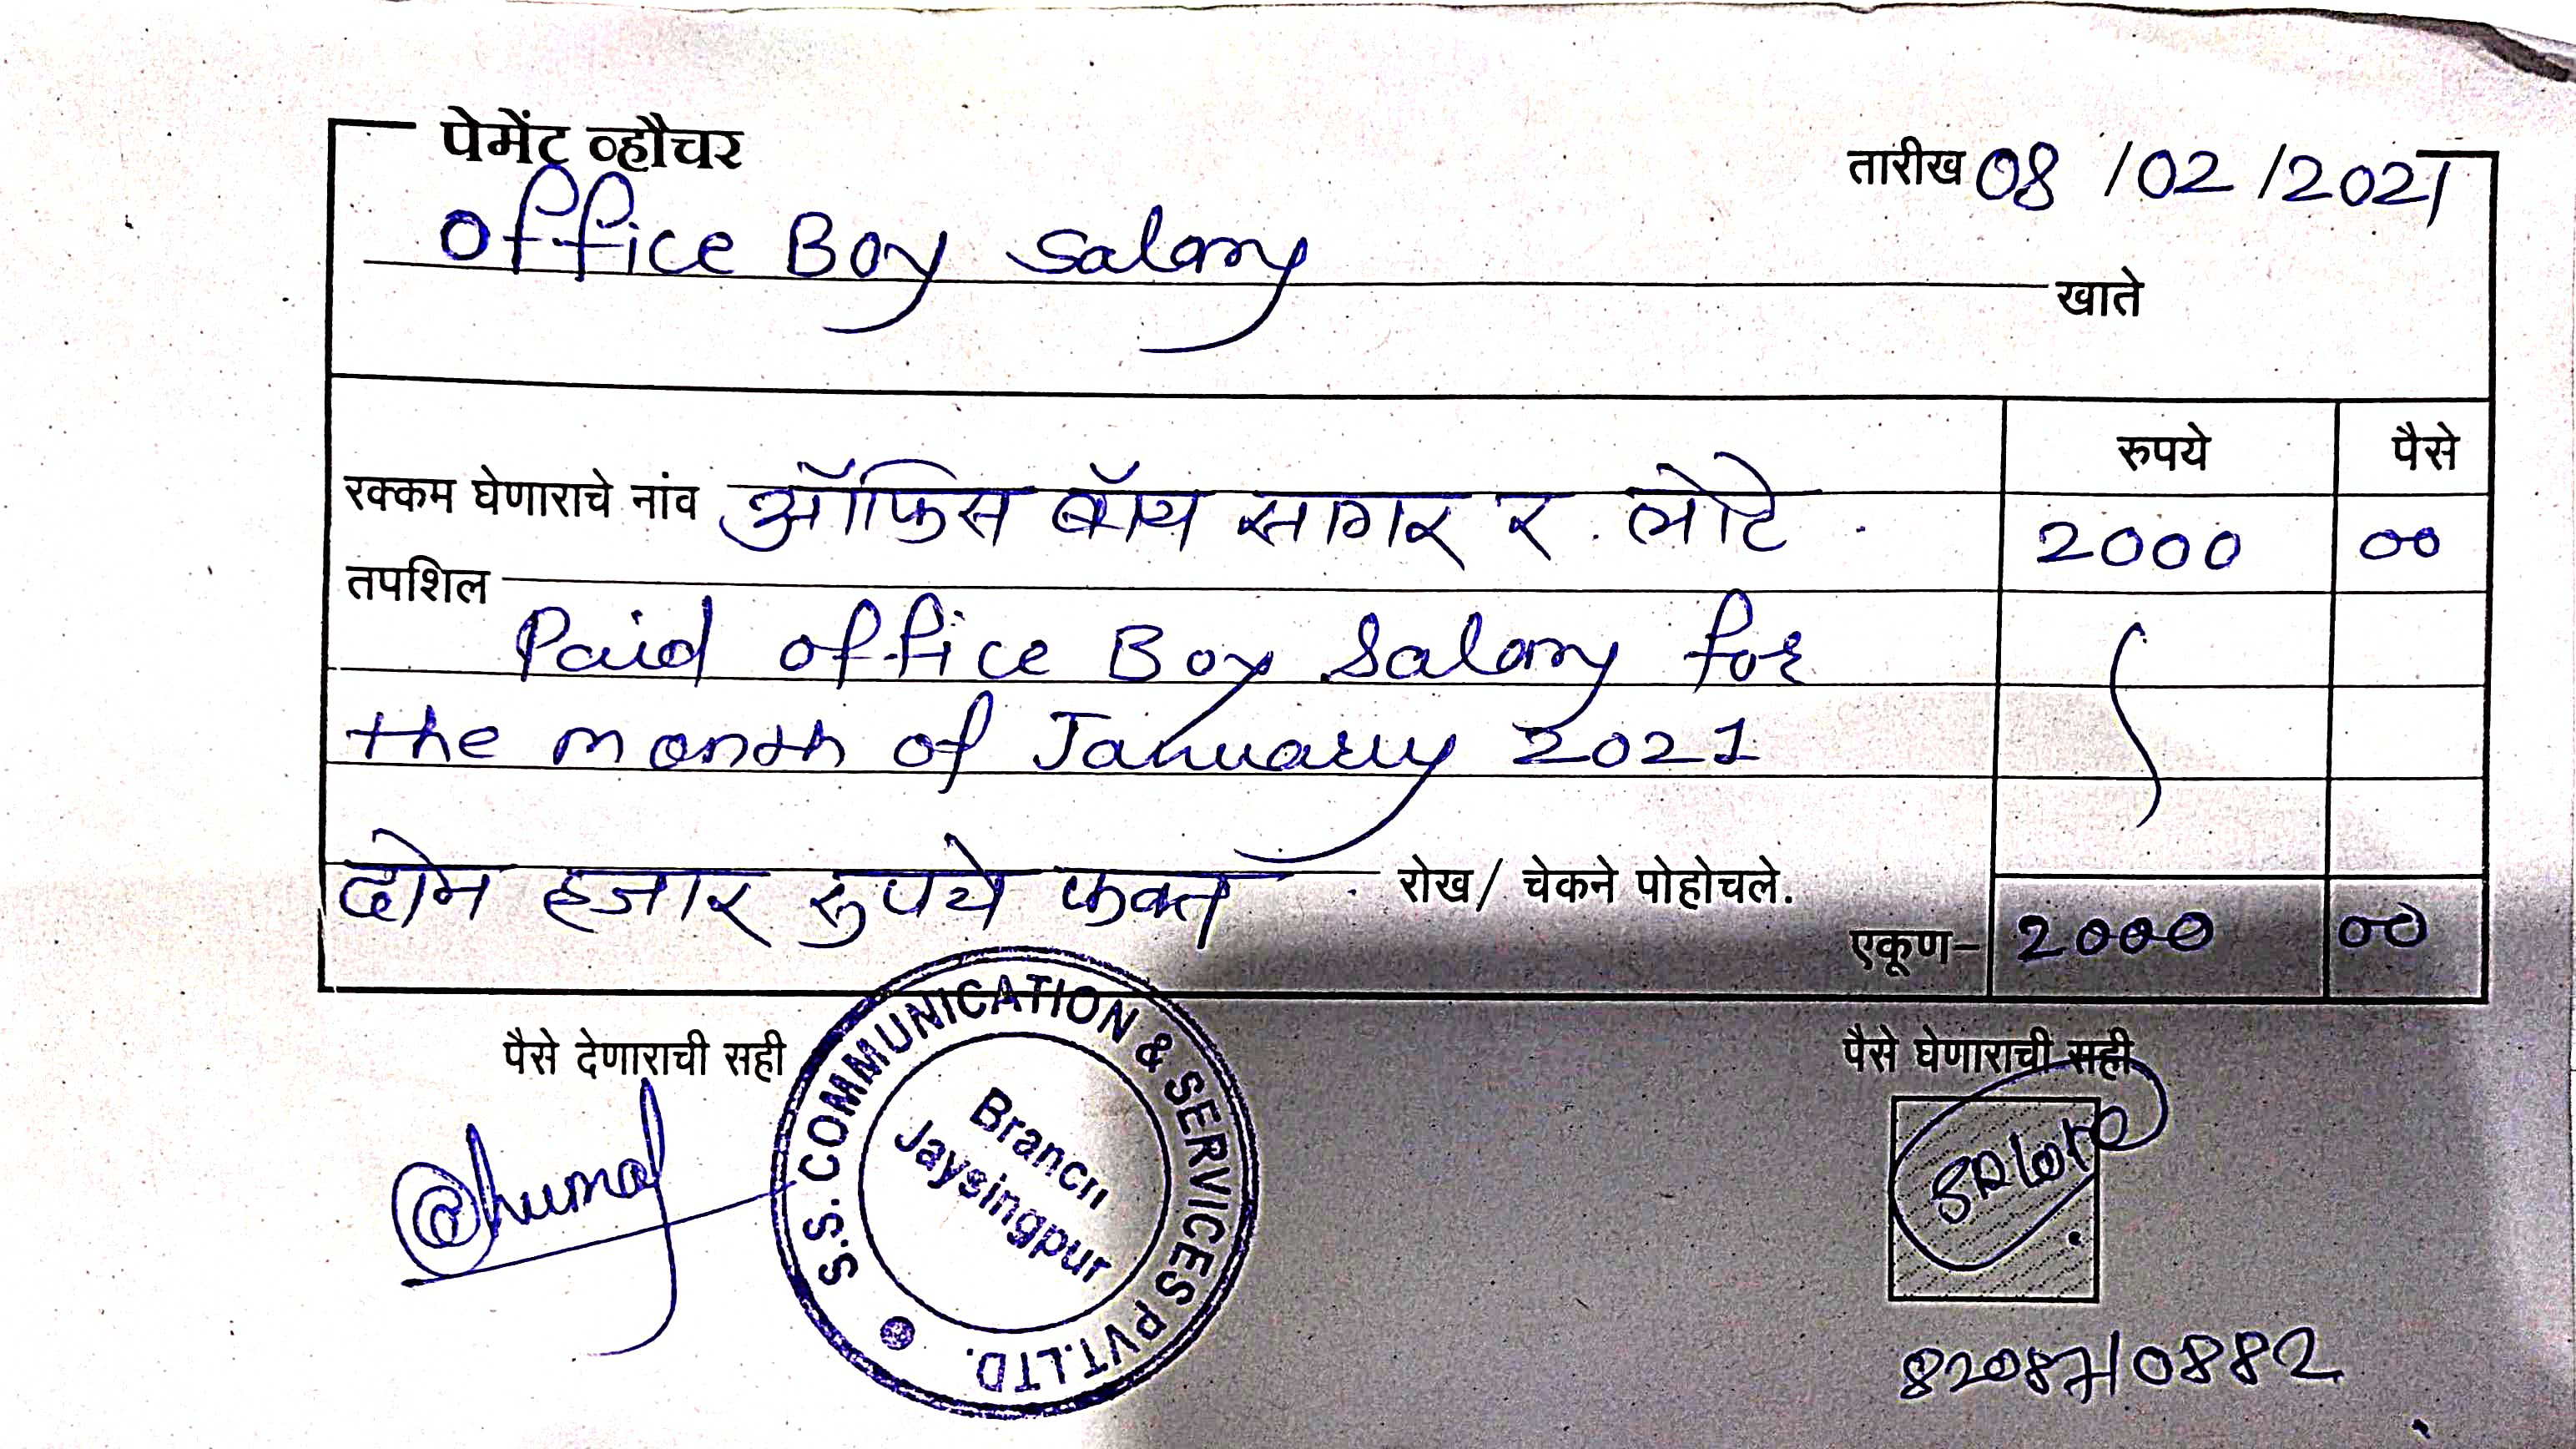 पेमेंट व्हौचर
तारीख 08/02/2021
Office Boy Salary
खाते
रुपये पैसे
रक्कम घेणाराचे नांव ऑफिस बॉय सागर र. लोटे. 2000 00
तपशिल
Paid office Boy Salary for
the month of January 2021
दोन हजार रुपये फक्त रोख/ चेकने पोहोचले.
एकूण- 2000 00
पैसे देणाराची सही
पैसे घेणाराची सही
S.S. COMMUNICATION & SERVICES PVT.LTD.
Branch
Jaysingpur
SRLote
8208710882